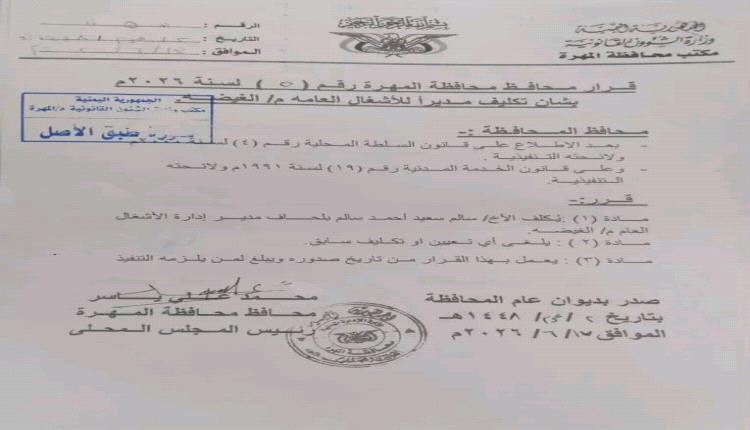 الجمهورية اليمنية
وزارة الشؤون القانونية
مكتب محافظة المهرة
الرقم :
التاريخ :
الموافق :
قرار محافظ محافظة المهرة رقم ( ٥ ) لسنة ٢٠٢٦م
بشان تكليف مديراً للأشغال العامه م/ الغيضه
الجمهورية اليمنية
الشئون القانونية م/المهرة
صورة طبق الأصل
محافظ المحافظة :-
- بعد الاطلاع على قانون السلطة المحلية رقم (٤) لسنة
ولائحته التنفيذية.
- وعلى قانون الخدمة المدنية رقم (١٩) لسنة ١٩٩١م ولائحته
التنفيذية.
قرر:-
مادة (١) :يُكلف الأخ/ سالم سعيد أحمد سالم بلحاف مدير إدارة الأشغال
العام م/ الغيضه.
مادة (٢) : يلغى أي تعيين او تكليف سابق.
مادة (٣) : يعمل بهذا القرار من تاريخ صدوره ويبلغ لمن يلزمه التنفيذ
صدر بديوان عام المحافظة
بتاريخ ٢/ /١٤٤٨هـ
الموافق ١٧/ ٦ /٢٠٢٦م
محمد علي ياسر
محافظ محافظة المهرة
رئيس المجلس المحلي